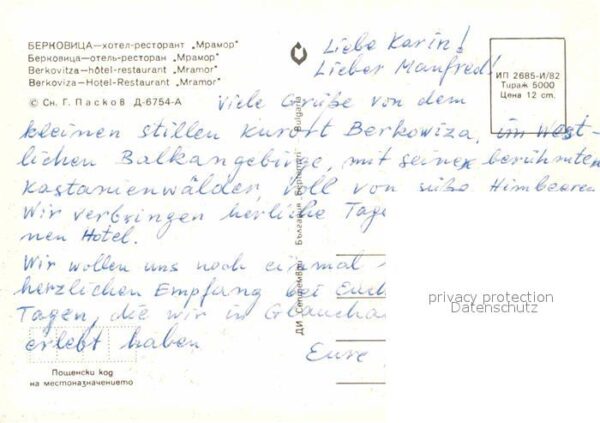 БЕРКОВИЦА—хотел-ресторант „Мрамор"
Берковица—отель-ресторан „Мрамор"
Berkovitza—hôtel-restaurant „Mramor"
Berkoviza—Hotel-Restaurant „Mramor"
© Сн. Г. Пасков Д-6754-А
ИП 2685-И/82
Тираж 5000
Цена 12 ст.
Liebe Karin!
Lieber Manfred!
Viele Grüße von dem
kleinen stillen Kurort Berkowiza, im West-
lichen Balkangebirge, mit seinen berühmten
Kastanienwälder, voll von süße Himbeeren
Wir verbringen herliche Tage
nen Hotel.
Wir wollen uns noch einmal
herzlichen Empfang bei Euch
Tagen, die wir in Glaucha
erlebt haben
Eure
ДИ Септември България Septemvri Bulgaria
Пощенски код
на местоназначението
privacy protection
Datenschutz